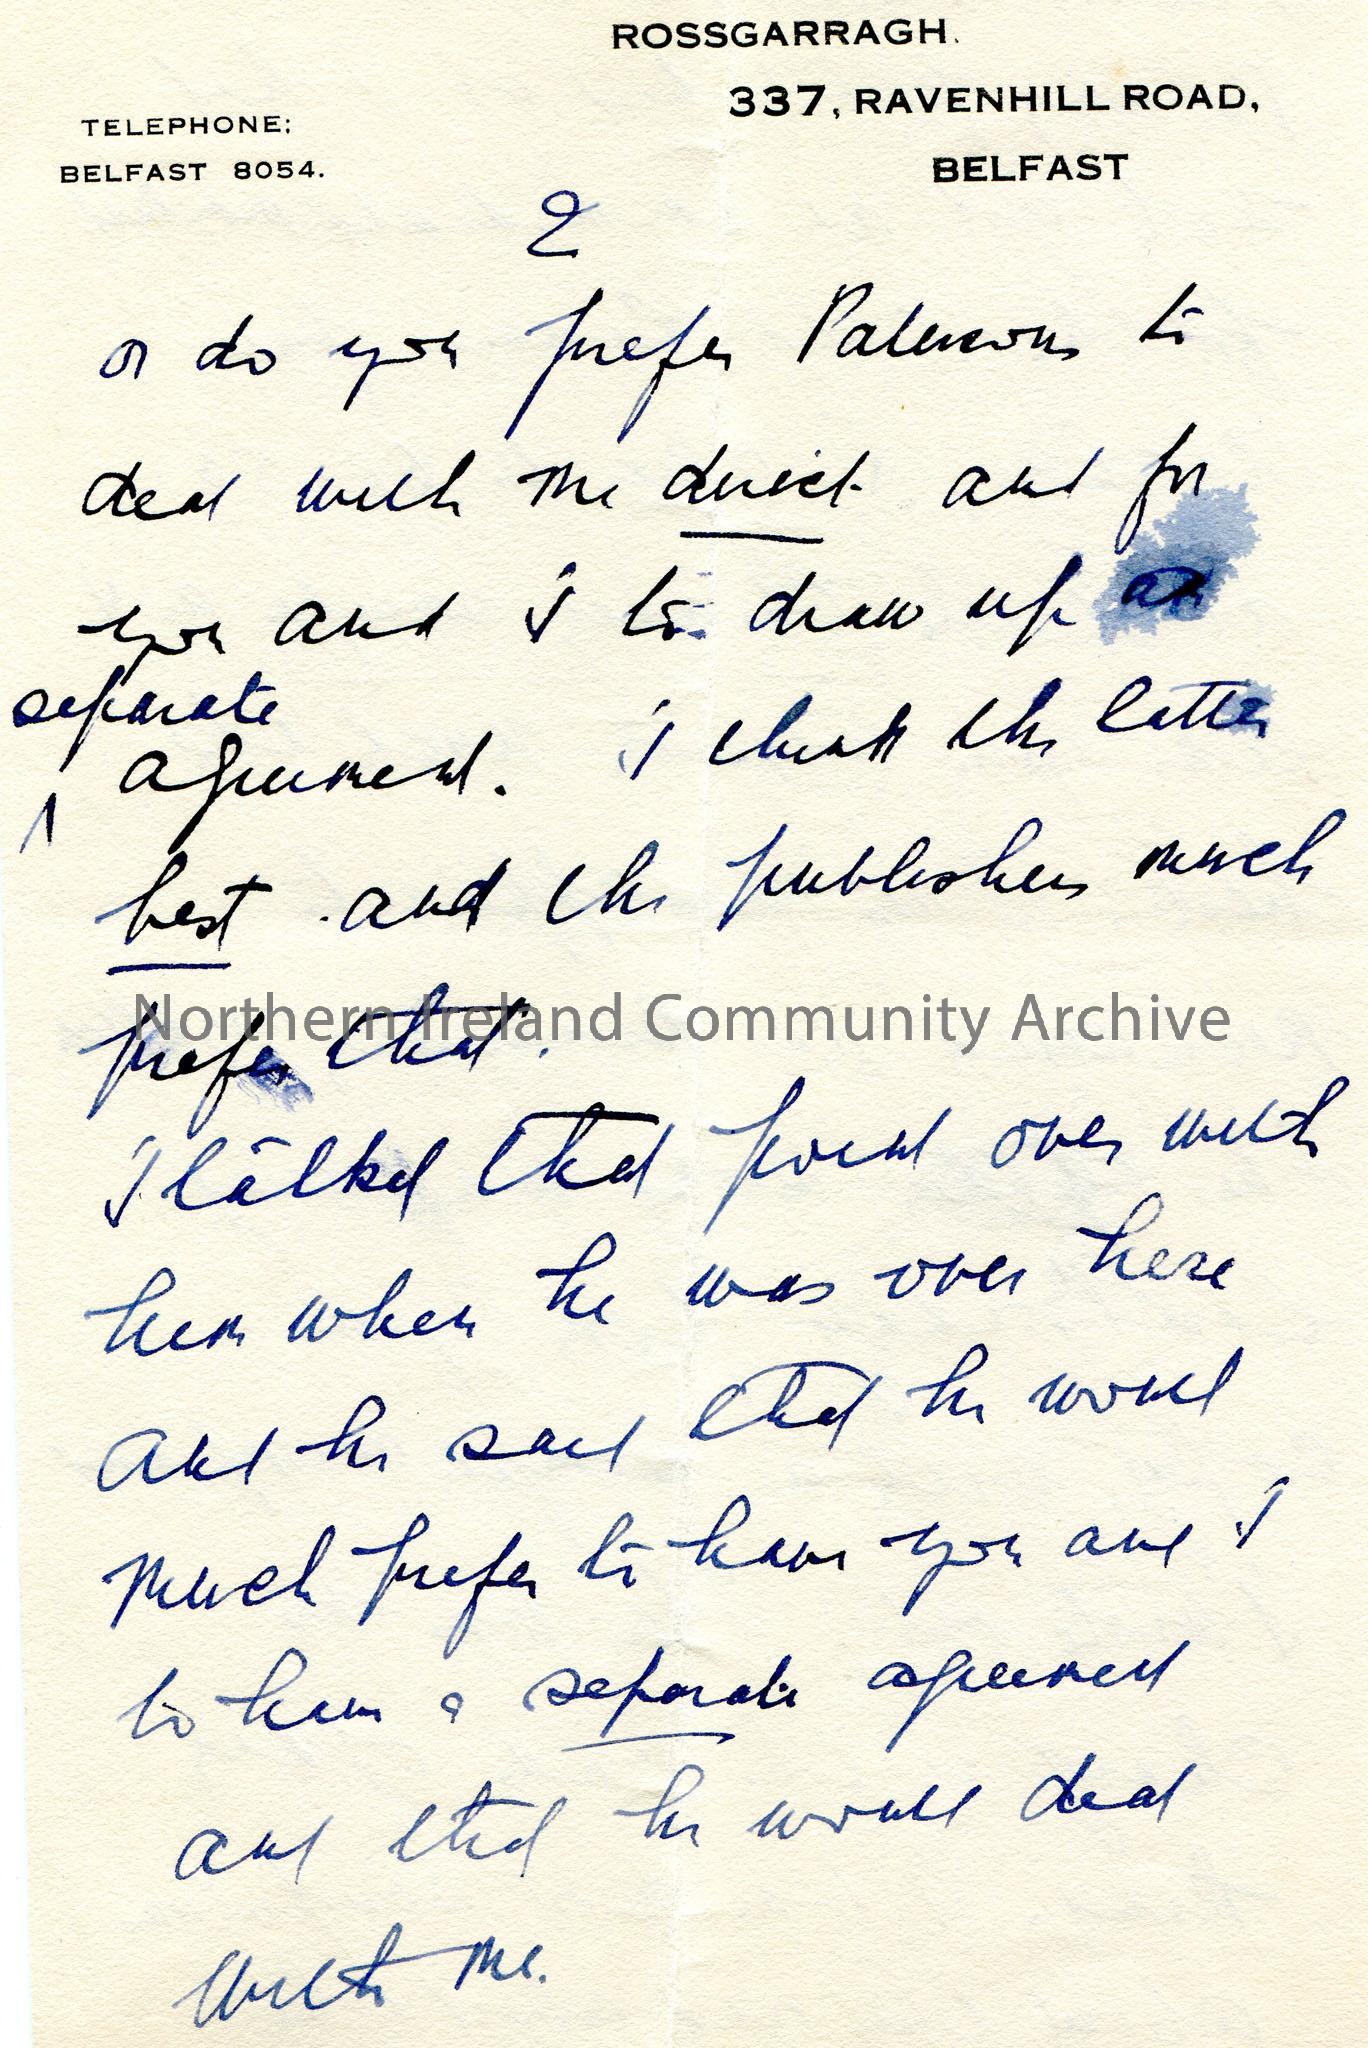 ROSSGARRAGH.
337, RAVENHILL ROAD,
BELFAST
TELEPHONE:
BELFAST 8054.
2
or do you prefer Patersons to
deal with me direct and for
you and I to draw up an
separate
agreement. I think the latter
best and the publishers much
prefer that.
Northern Ireland Community Archive
I talked that point over with
him when he was over here
and he said that he would
much prefer to have you and I
to have a separate agreement
and that he would deal
with me.